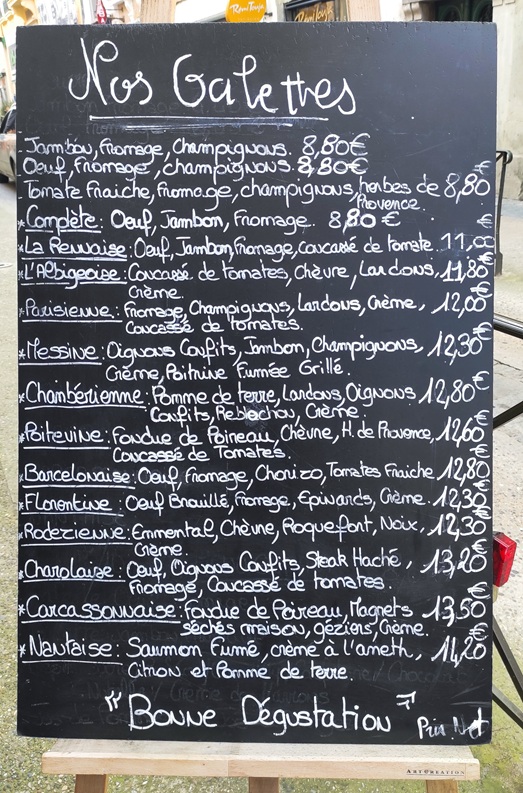 Rémi Touja
Nos Galettes
Jambon, Fromage, Champignons. 8,80€
Oeuf, Fromage, champignons. 8,80€
Tomate Fraiche, Fromage, champignons, herbes de 8,80€
Provence.
*Complète: Oeuf, Jambon, Fromage. 8,80€
*La Rennaise: Oeuf, Jambon, Fromage, concassé de tomate. 11,80€
*L'Albigeoise: Concassé de tomates, Chèvre, Lardons, 11,80€
Crème.
*Parisienne: Fromage, Champignons, Lardons, Crème, 12,00€
Concassé de tomates.
*Messine: Oignons Confits, Jambon, Champignons, 12,30€
Crème, Poitrine Fumée Grillé.
*Chambérienne: Pomme de terre, Lardons, Oignons 12,80€
Confits, Reblochon, Crème.
*Poitevine: Fondue de Poireau, Chèvre, H. de Provence, 12,60€
Concassé de Tomates.
*Barcelonaise: Oeuf, Fromage, Chorizo, Tomates Fraiche. 12,80€
*Florentine: Oeuf Brouillé, Fromage, Epinards, Crème. 12,30€
*Roderienne: Emmental, Chèvre, Roquefort, Noix, 12,30€
Crème.
*Charolaise: Oeuf, Oignons Confits, Steak Haché, 13,20€
Fromage, Concassé de tomates.
*Carcassonnaise: Fondue de Poireau, Magrets 13,50€
séchés maison, géziers, Crème.
*Nantaise: Saumon Fumé, crème à l'aneth, 14,20€
Citron et Pomme de terre.
"Bonne Dégustation"
Prix Net
ArtCreation